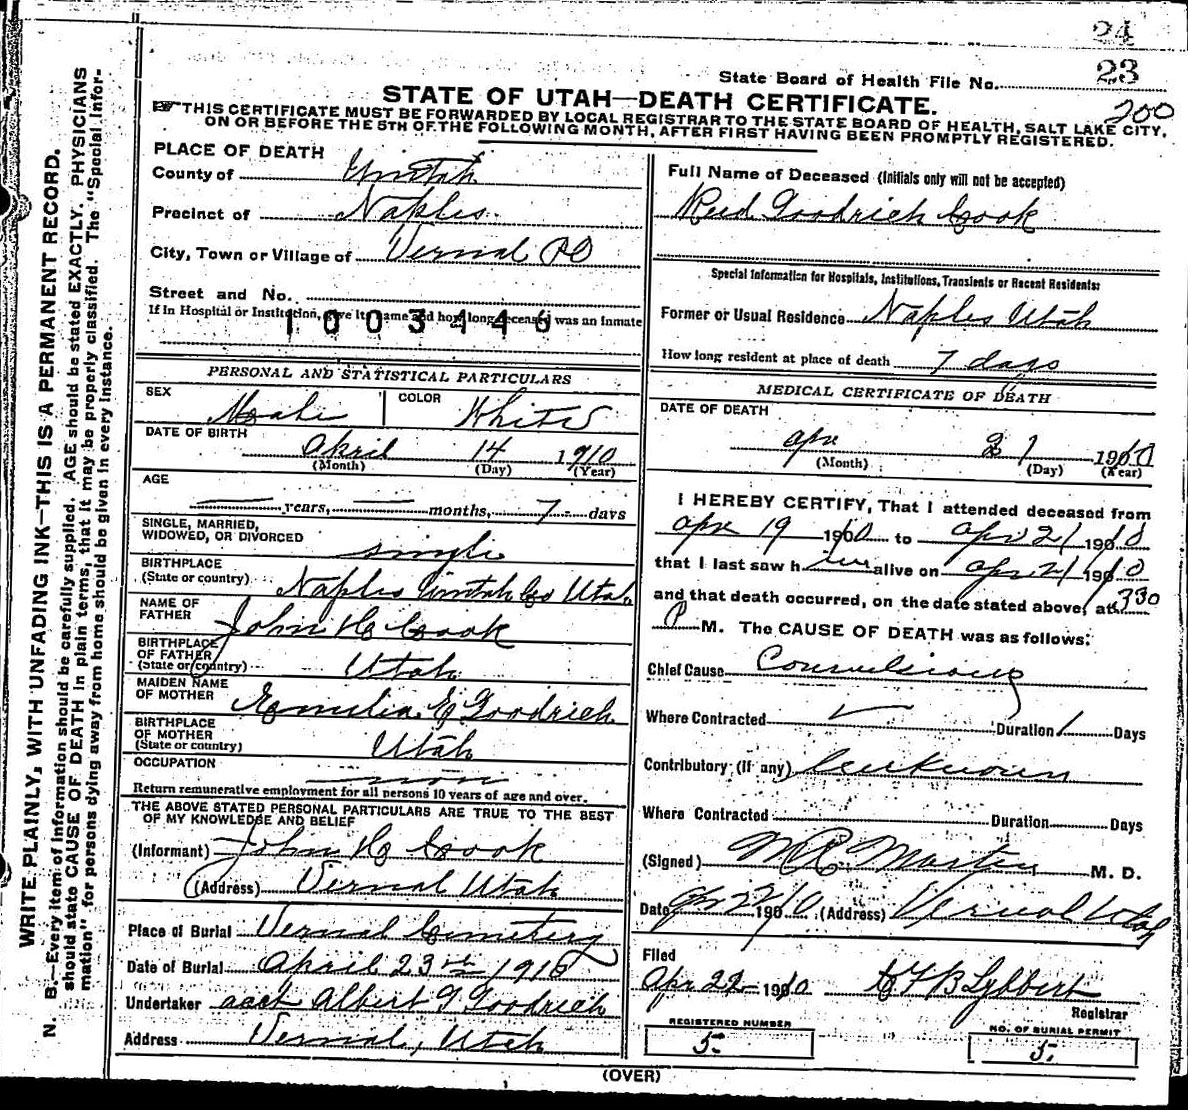 24
23
State Board of Health File No.
200
STATE OF UTAH—DEATH CERTIFICATE.
THIS CERTIFICATE MUST BE FORWARDED BY LOCAL REGISTRAR TO THE STATE BOARD OF HEALTH, SALT LAKE CITY,
ON OR BEFORE THE 5TH OF THE FOLLOWING MONTH, AFTER FIRST HAVING BEEN PROMPTLY REGISTERED.
WRITE PLAINLY, WITH UNFADING INK—THIS IS A PERMANENT RECORD.
N. B.—Every item of information should be carefully supplied. AGE should be stated EXACTLY. PHYSICIANS
should state CAUSE OF DEATH in plain terms, that it may be properly classified. The "Special Infor-
mation" for persons dying away from home should be given in every instance.
PLACE OF DEATH
County of Uintah
Precinct of Naples
City, Town or Village of Vernal PO
Street and No.
If in Hospital or Institution, give its name and how long deceased was an inmate
1003446
PERSONAL AND STATISTICAL PARTICULARS
SEX Male COLOR White
DATE OF BIRTH April 14 1910
(Month) (Day) (Year)
AGE
years, months, 7 days
SINGLE, MARRIED,
WIDOWED, OR DIVORCED single
BIRTHPLACE
(State or country) Naples Uintah Co Utah
NAME OF
FATHER John H Cook
BIRTHPLACE
OF FATHER
(State or country) Utah
MAIDEN NAME
OF MOTHER Emelia E Goodrich
BIRTHPLACE
OF MOTHER
(State or country) Utah
OCCUPATION non
Return remunerative employment for all persons 10 years of age and over.
THE ABOVE STATED PERSONAL PARTICULARS ARE TRUE TO THE BEST
OF MY KNOWLEDGE AND BELIEF
(Informant) John H Cook
(Address) Vernal Utah
Place of Burial Vernal Cemetery
Date of Burial April 23rd 1910
Undertaker acct Albert G Goodrich
Address Vernal, Utah
Full Name of Deceased (Initials only will not be accepted)
Reed Goodrich Cook
Special Information for Hospitals, Institutions, Transients or Recent Residents:
Former or Usual Residence Naples Utah
How long resident at place of death 7 days
MEDICAL CERTIFICATE OF DEATH
DATE OF DEATH
apr 21 1910
(Month) (Day) (Year)
I HEREBY CERTIFY, That I attended deceased from
apr 19 1910 to apr 21 1910
that I last saw him alive on apr 21 1910
and that death occurred, on the date stated above, at 330
P M. The CAUSE OF DEATH was as follows:
Chief Cause Convulsions
Where Contracted Duration 1 Days
Contributory (if any) Unknown
Where Contracted Duration Days
(Signed) M. D.
Date apr 22 1910 (Address) Vernal Utah
Filed
Apr 22 1910 Lybbert
Registrar
REGISTERED NUMBER
5.
NO. OF BURIAL PERMIT
5.
(OVER)